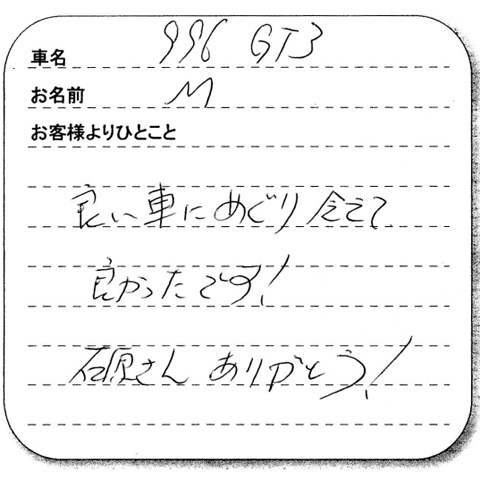 車名 996 GT3
お名前 M
お客様よりひとこと
良い車にめぐり会えて
良かったです!
石原さん ありがとう!